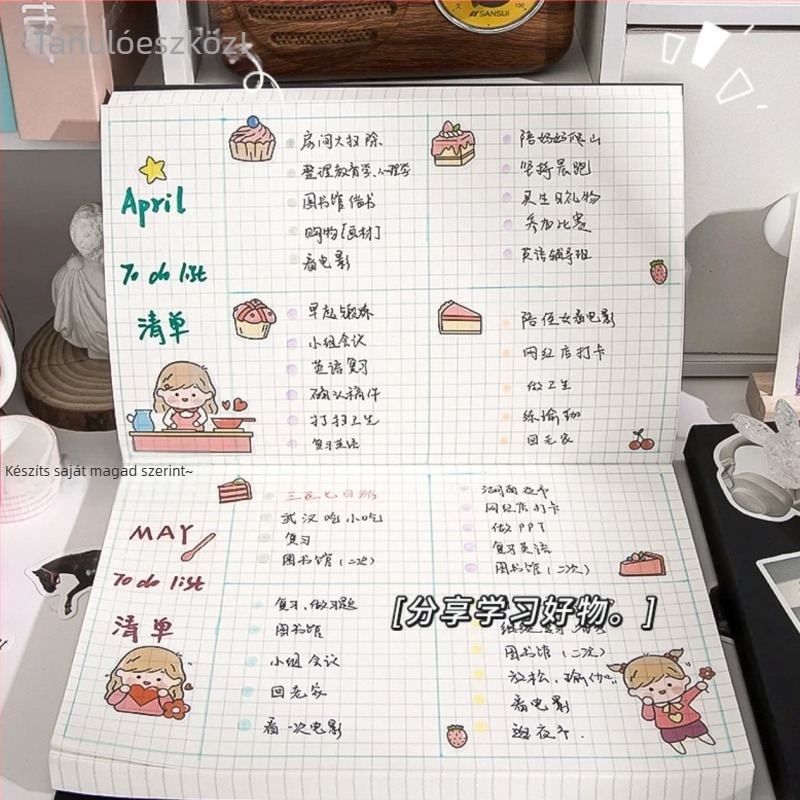 Tanulóeszköz!
SANSUI
April
To do list
清单
房间大扫除
整理教育学、心理学
图书馆借书
购物[画材]
看电影
陪妈妈爬山
坚持晨跑
买生日礼物
参加比赛
英语辅导班
早起锻炼
小组会议
英语复习
确认稿件
打扫卫生
复习英语
陪侄女看电影
网红店打卡
做卫生
练瑜伽
回老家
Készíts saját magad szerint~
MAY
To do list
清单
武汉吃小吃
复习
图书馆(二次)
逛夜市
网红店打卡
做PPT
复习英语
图书馆(二次)
[分享学习好物。]
复习、做习题
图书馆
小组会议
回老家
看一次电影
图书馆(二次)
放松,瑜伽
看电影
逛夜市.